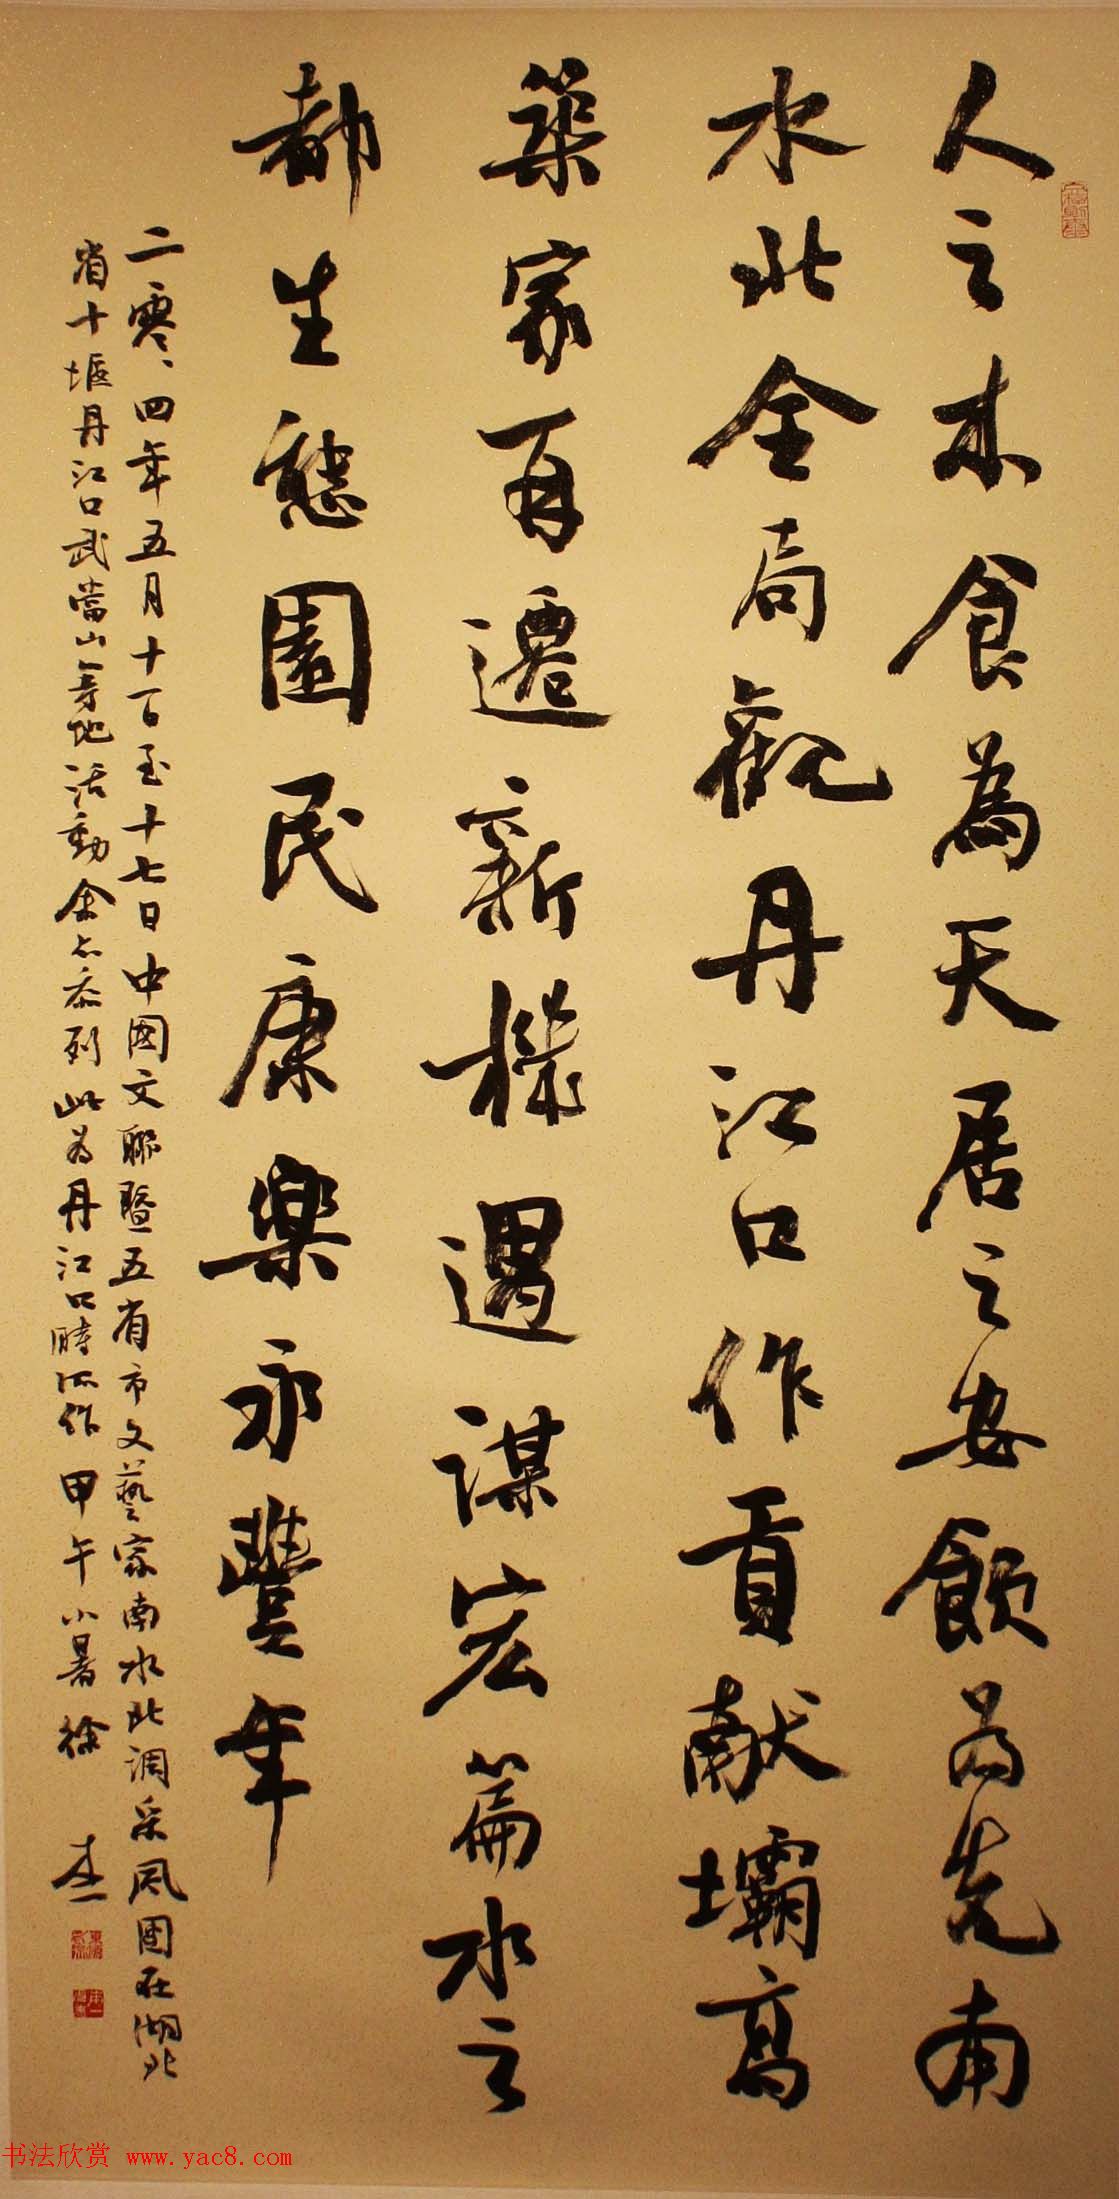 人之本食為天居之安飲為先南
水北全局觀丹江口作貢献壩高
築家再遷新機遇謀宏篇水之
都生態園民康樂永豐年
二零一四年五月十一日至十七日中國文聯暨五省市文藝家南水北調采風團在湖北
省十堰丹江口武當山等地活動余亦忝列此為丹江口時所作甲午小暑徐
书法欣赏 www.yac8.com